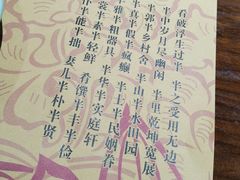 看破浮生过半 半之受用无边
半中岁月尽幽闲 半里乾坤宽展
半郭半乡村舍 半山半水田园
半真半假半疯癫 半士半民姻眷
半雅半粗器具 半华半实庭轩
裳半素半轻鲜 肴馔半丰半俭
半能半拙 妻儿半朴半贤